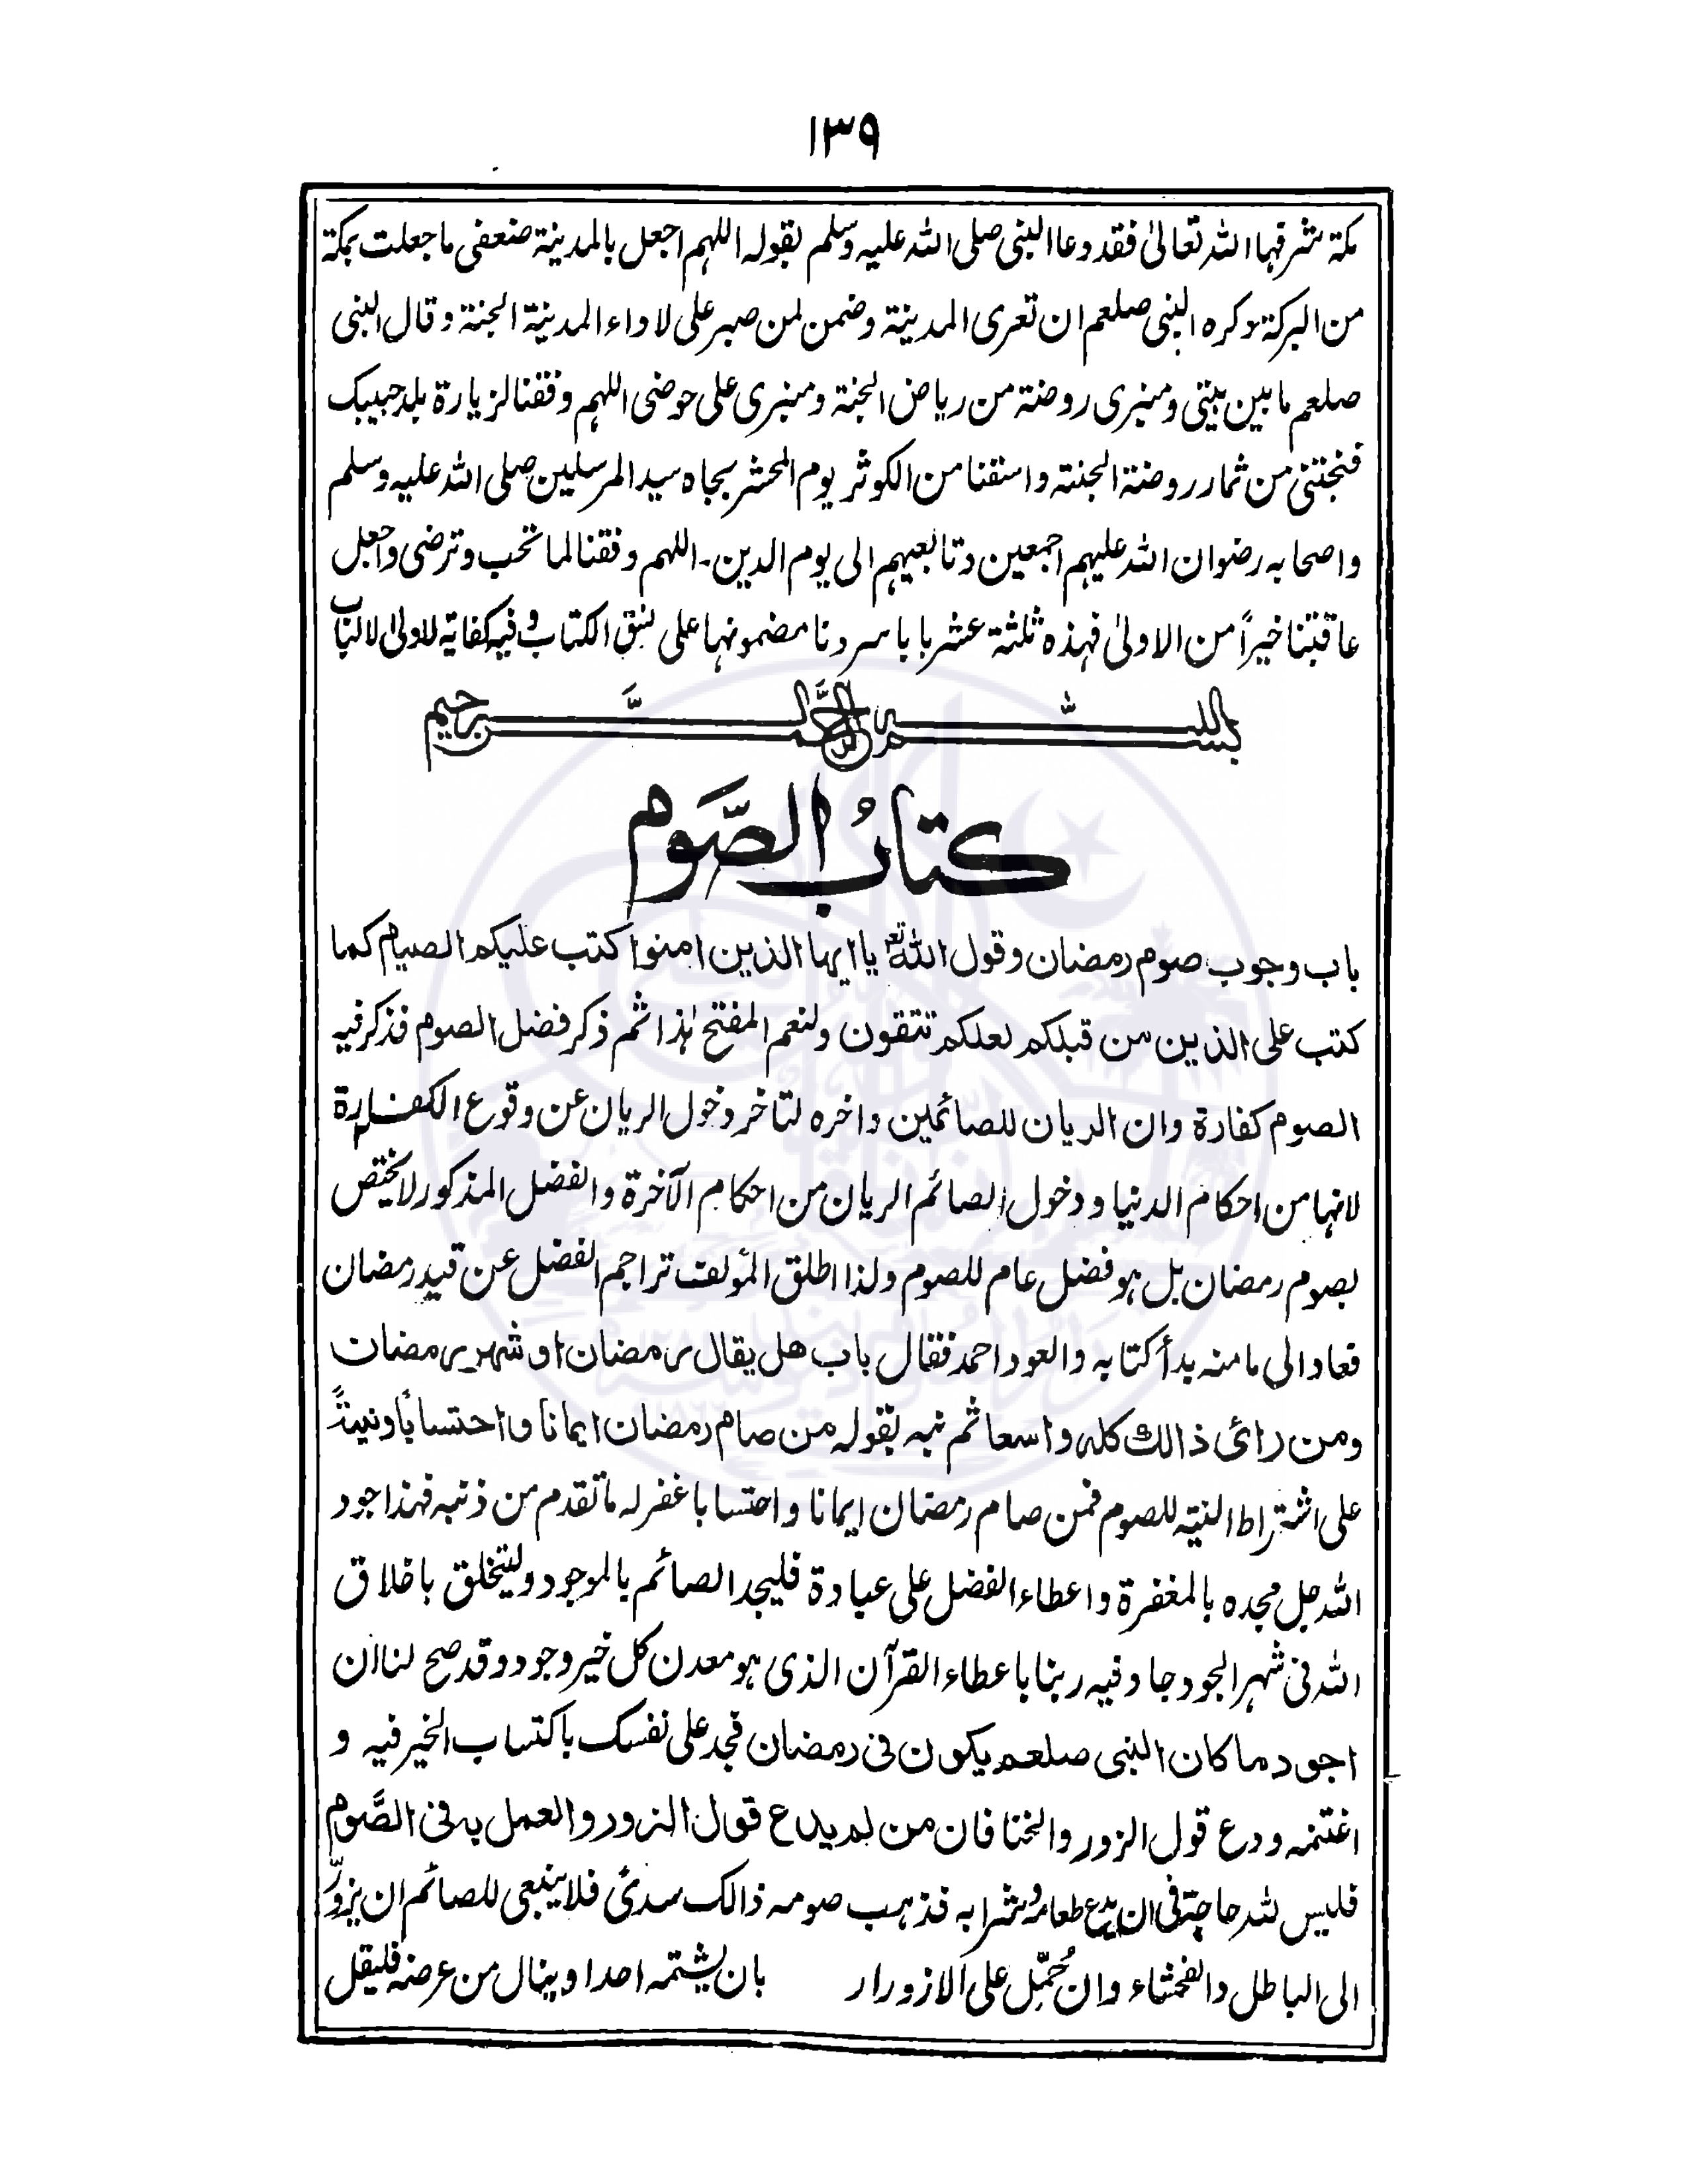 ١٣٩
مكة شرفها الله تعالىٰ فقد دعا النبى صلى الله عليه وسلم بقوله اللهم اجعل بالمدينة ضعفى ما جعلت بمكة
من البركة وكره النبى صلعم ان تعرى المدينة وضمن لمن صبر على لاواء المدينة الجنة وقال النبى
صلعم ما بين بيتى ومنبرى روضة من رياض الجنة ومنبرى على حوضى اللهم وفقنا لزيارة بلد حبيبك
فنجتنى من ثمار روضة الجنة واسقنا من الكوثر يوم المحشر بجاه سيد المرسلين صلى الله عليه وسلم
واصحابه رضوان الله عليهم اجمعين وتابعيهم الى يوم الدين۔ اللهم وفقنا لما تحب وترضى واجعل
عاقبتنا خيراً من الاولىٰ فهذه ثلثة عشر بابا سردنا مضمونها على نسق الكتاب وفيه كفاية لاولى الالباب
بسم الله الرحمن الرحيم
كتابُ الصَّوم
باب وجوب صوم رمضان وقول الله تع يا ايها الذين امنوا كتب عليكم الصيام كما
كتب على الذين من قبلكم لعلكم تتقون ولنعم المفتح هٰذا ثم ذكر فضل الصوم فذكر فيه
الصوم كفارة وان الريان للصائمين واخره لتاخر دخول الريان عن وقوع الكفارة
لانها من احكام الدنيا ودخول الصائم الريان من احكام الآخرة والفضل المذكور لا يختص
بصوم رمضان بل هو فضل عام للصوم ولذا اطلق المؤلف تراجم الفضل عن قيد رمضان
فعاد الى ما منه بدأ كتابه والعود احمد فقال باب هل يقال رمضان او شهر رمضان
ومن رائ ذالك كله واسعا ثم نبه بقوله من صام رمضان ايمانا و احتساباً ونيةً
على اشتراط النية للصوم فمن صام رمضان ايمانا واحتسابا غفر له ما تقدم من ذنبه فهذا جود
الله جل مجده بالمغفرة واعطاء الفضل على عبادة فليجد الصائم بالموجود وليتخلق باخلاق
الله فى شهر الجود جاد فيه ربنا باعطاء القرآن الذى هو معدن كل خير وجود وقد صح لنا ان
اجود ما كان النبى صلعم يكون فى رمضان فجد على نفسك باكتساب الخير فيه و
اغتنمه ودع قول الزور والخنا فان من لم يدع قول الزور والعمل به فى الصَّوم
فليس لله حاجة فى ان يدع طعامه وشرابه فذهب صومه ذالك سدىً فلا ينبغى للصائم ان يزورّ
الى الباطل والفحشاء وان حُمِّل على الازورار بان يشتمه احد او ينال من عرضه فليقل